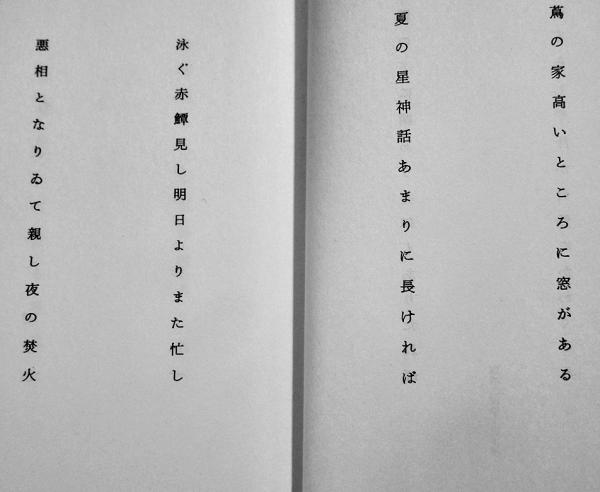 蔦の家高いところに窓がある
夏の星神話あまりに長ければ
泳ぐ赤鱏見し明日よりまた忙し
悪相となりゐて親し夜の焚火